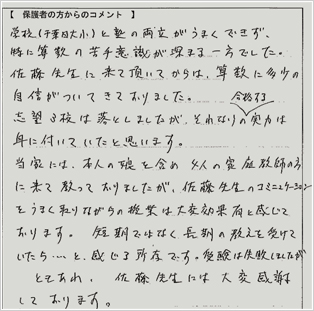 【 保護者の方からのコメント 】
学校(千葉日大小)と塾の両立がうまくできず、
特に算数の苦手意識が深まる一方でした。
佐藤先生に来て頂いてからは、算数に多少の
自信がついてきておりました。
合格する
志望3校は落としましたが、それなりの実力は
身に付いていたと思います。
当家には、本人の娘を含め 4人の家庭教師の方
に来て教っておりましたが、佐藤先生のコミュニケーション
をうまく取りながらの授業は大変効果有と感じて
おります。 短期ではなく長期の教えを受けて
いたら…と、感じる所存です。受験は失敗しましたが
ともあれ、 佐藤先生には大変感謝
しております。